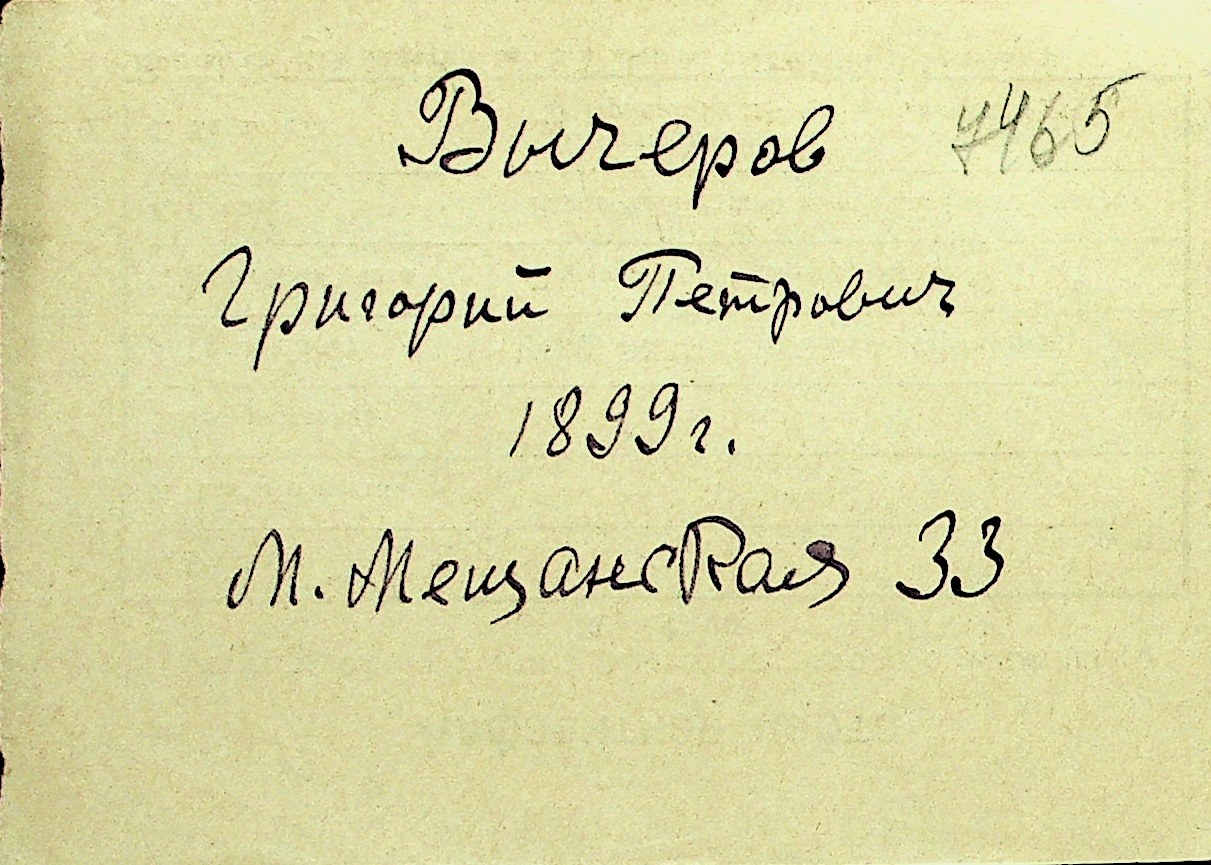 Вычеров 7465
Григорий Петрович
1899г.
М. Мещанская 33